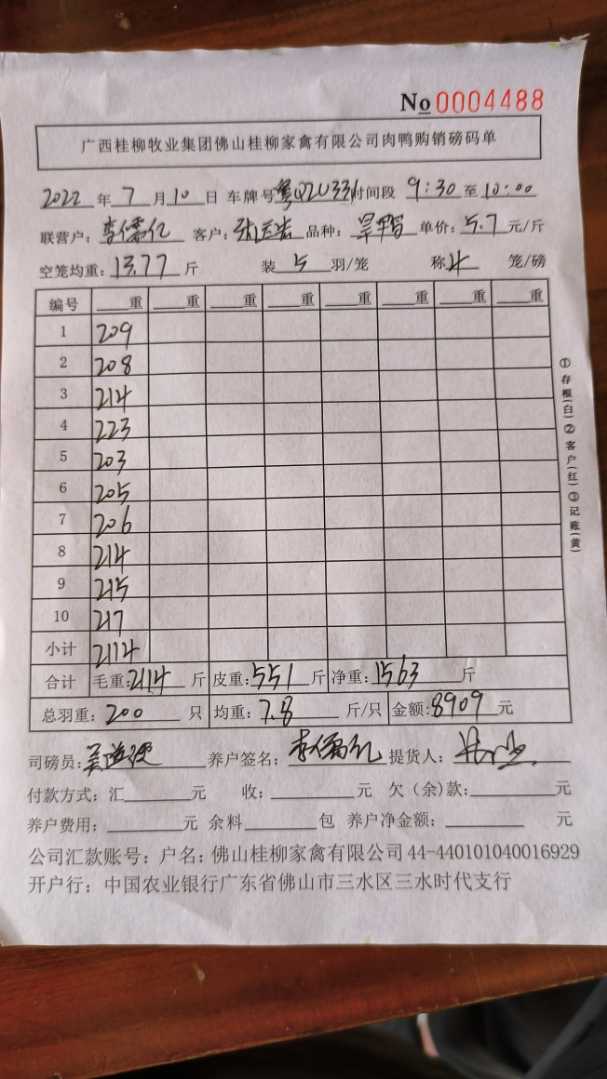 No 0004488
广西桂柳牧业集团佛山桂柳家禽有限公司肉鸭购销磅码单
2022 年 7 月 10 日 车牌号 粤Q2U331 时间段 9:30 至 10:00
联营户: 李儒亿 客户: 品种: 单价: 5.7 元/斤
空笼均重: 13.77 斤 装 5 羽/笼 称 4 笼/磅
编号 重 重 重 重 重 重 重 重
1 209
2 208
3 214
4 223
5 203
6 205
7 206
8 214
9 215
10 217
小计 2114
合计 毛重: 2114 斤 皮重: 551 斤 净重: 1563 斤
总羽重: 200 只 均重: 7.8 斤/只 金额: 8909 元
司磅员: 养户签名: 李儒亿 提货人:
付款方式: 汇 元 收: 元 欠(余)款: 元
养户费用: 元 余料 包 养户净金额: 元
公司汇款账号: 户名: 佛山桂柳家禽有限公司 44-440101040016929
开户行: 中国农业银行广东省佛山市三水区三水时代支行
①存根(白)②客户(红)③记账(黄)